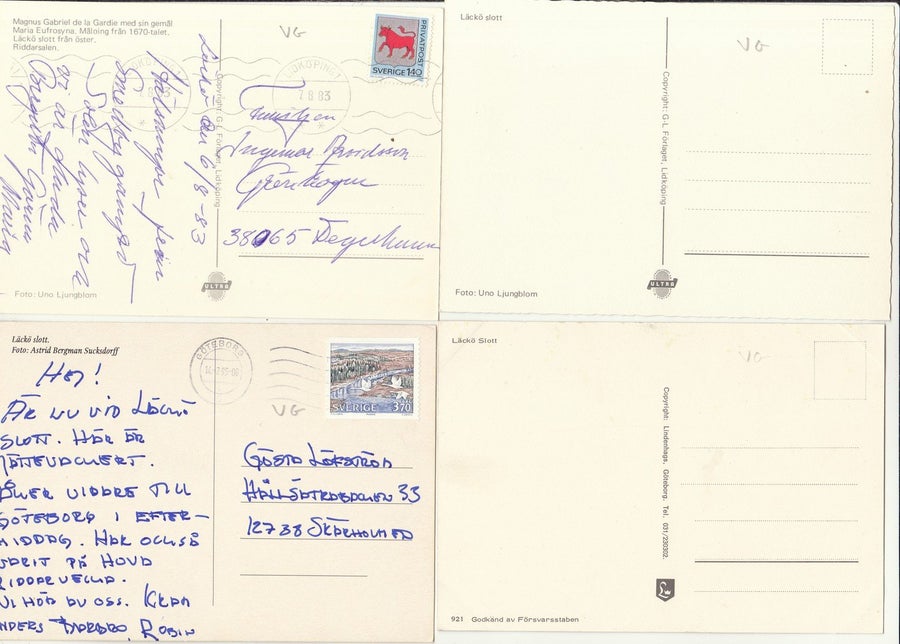 Magnus Gabriel de la Gardie med sin gemål
Maria Eufrosyna. Målning från 1670-talet.
Läckö slott från öster.
Riddarsalen.
VG
PRIVATPOST
SVERIGE 140
LIDKÖPING 1
7 8 83
Läckö den 6/8-83
Hälsningar från
Smedbygänget
Solen lyser
vi är glada
Birgitta
Maria
Copyright: G-L Förlaget, Lidköping
Familjen
Ingemar
38065 Degerhamn
ULTRA
Foto: Uno Ljungblom
Läckö slott
VG
Copyright: G-L Förlaget, Lidköping
ULTRA
Foto: Uno Ljungblom
Läckö slott.
Foto: Astrid Bergman Sucksdorff
GÖTEBORG
VG
SVERIGE 3,70
HEJ!
ÄR NU VID LÄCKÖ
SLOTT. HÄR ÄR
JÄTTEVACKERT.
ÅKER VIDARE TILL
GÖTEBORG I EFTER-
MIDDAG. HAR OCKSÅ
VARIT PÅ HOVA
RIDDARVECKA.
VI HÖR AV OSS. KRAM
ANDERS BARBRO ROBIN
GÖSTA LÖFSTRÖM
33
12738 SKÄRHOLMEN
Läckö Slott
VG
Copyright: Lindenhags, Göteborg. Tel. 031/230302.
L
921 Godkänd av Försvarsstaben